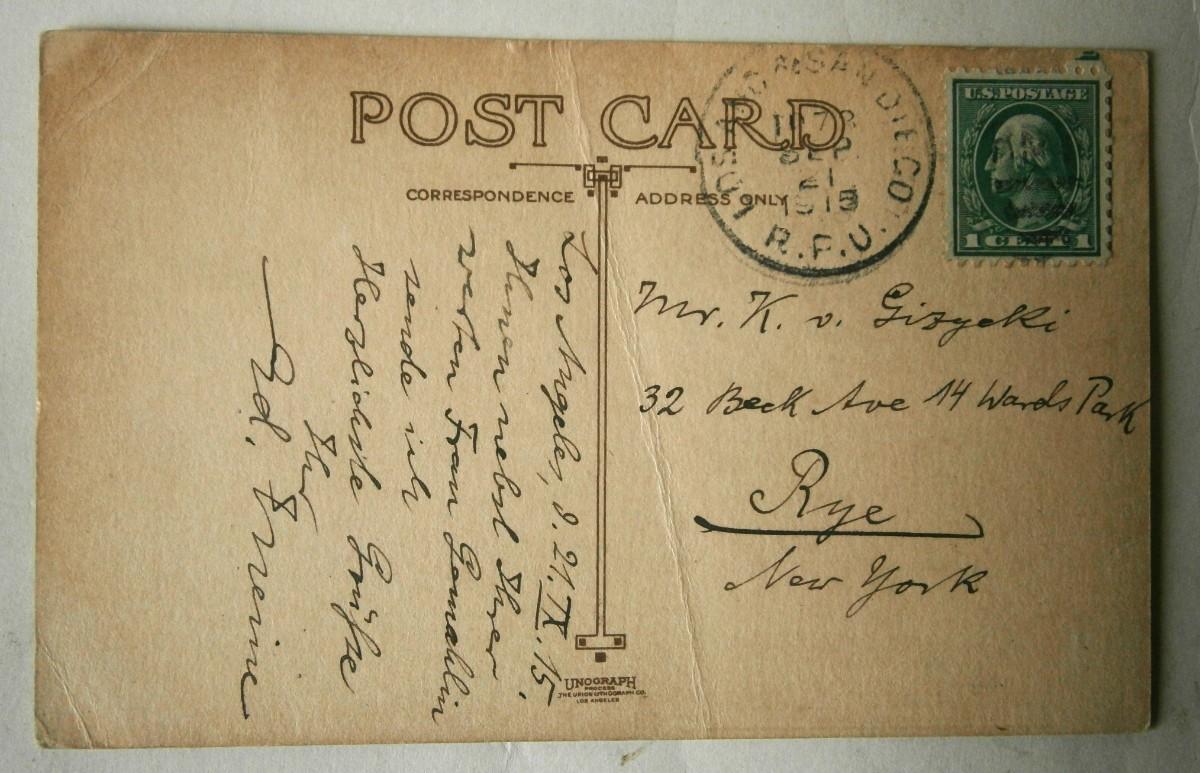 POST CARD
CORRESPONDENCE
ADDRESS ONLY
LOS ANG & SAN DIEGO
SEP
21
R.P.O.
U.S. POSTAGE
1 CENT 1
Los Angeles, d. 21. IX. 15.
Ihnen nebst Ihrer
werten Frau Gemahlin
sende ich
Herzlichste Grüße
Ihr
Ed.
Mr. K. v. Gizycki
32 Beck Ave 14 Wards Park
Rye
New York
UNOGRAPH
PROCESS
THE UNION LITHOGRAPH CO.
LOS ANGELES